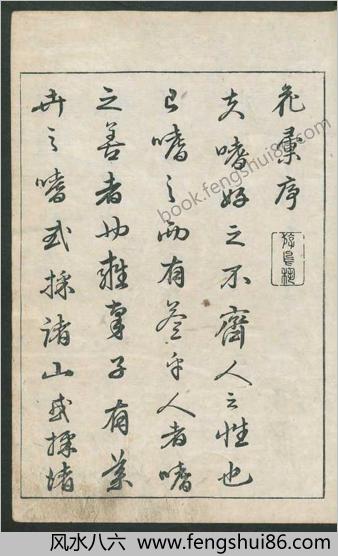 花彙序
夫嗜好之不齊人之性也
已嗜之而有益乎人者嗜
之善者也雍南子有草
卉之嗜或採諸山或採
book.fengshui86.com
风水八六 www.fengshui86.com